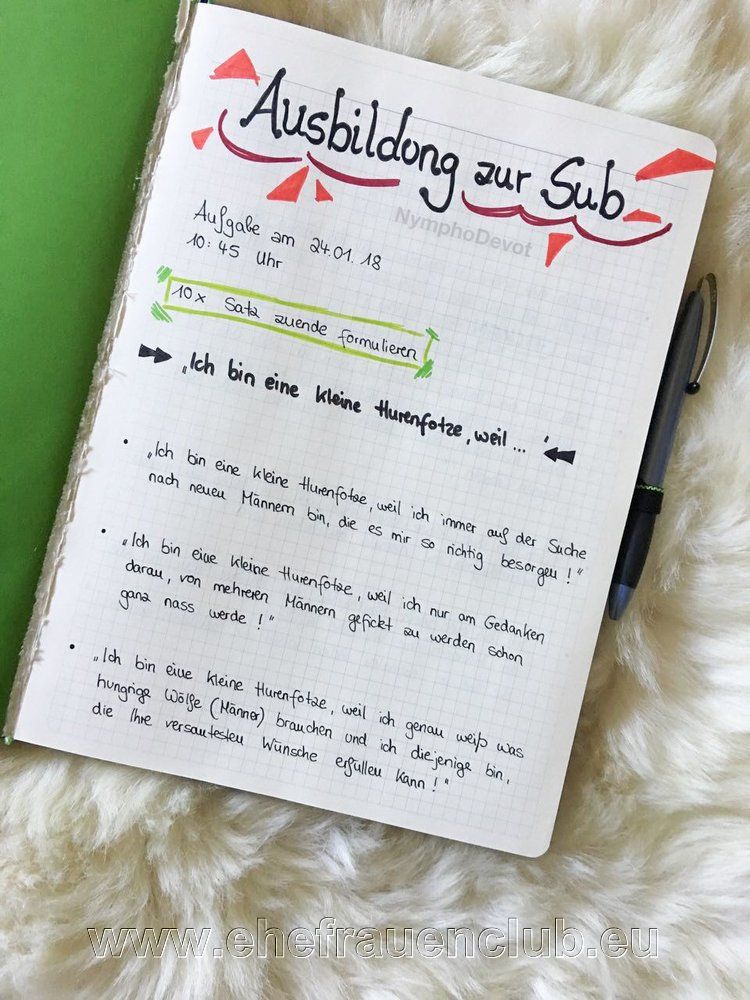 Ausbildung zur Sub
NymphoDevot
Aufgabe am 24.01.18
10:45 Uhr
10x Satz zuende formulieren
"Ich bin eine kleine Hurenfotze, weil..."
• "Ich bin eine kleine Hurenfotze, weil ich immer auf der Suche
nach neuen Männern bin, die es mir so richtig besorgen!"
• "Ich bin eine kleine Hurenfotze, weil ich nur am Gedanken
daran, von mehreren Männern gefickt zu werden schon
ganz nass werde!"
• "Ich bin eine kleine Hurenfotze, weil ich genau weiß was
hungrige Wölfe (Männer) brauchen und ich diejenige bin,
die Ihre versautesten Wünsche erfüllen kann!"
www.ehefrauenclub.eu